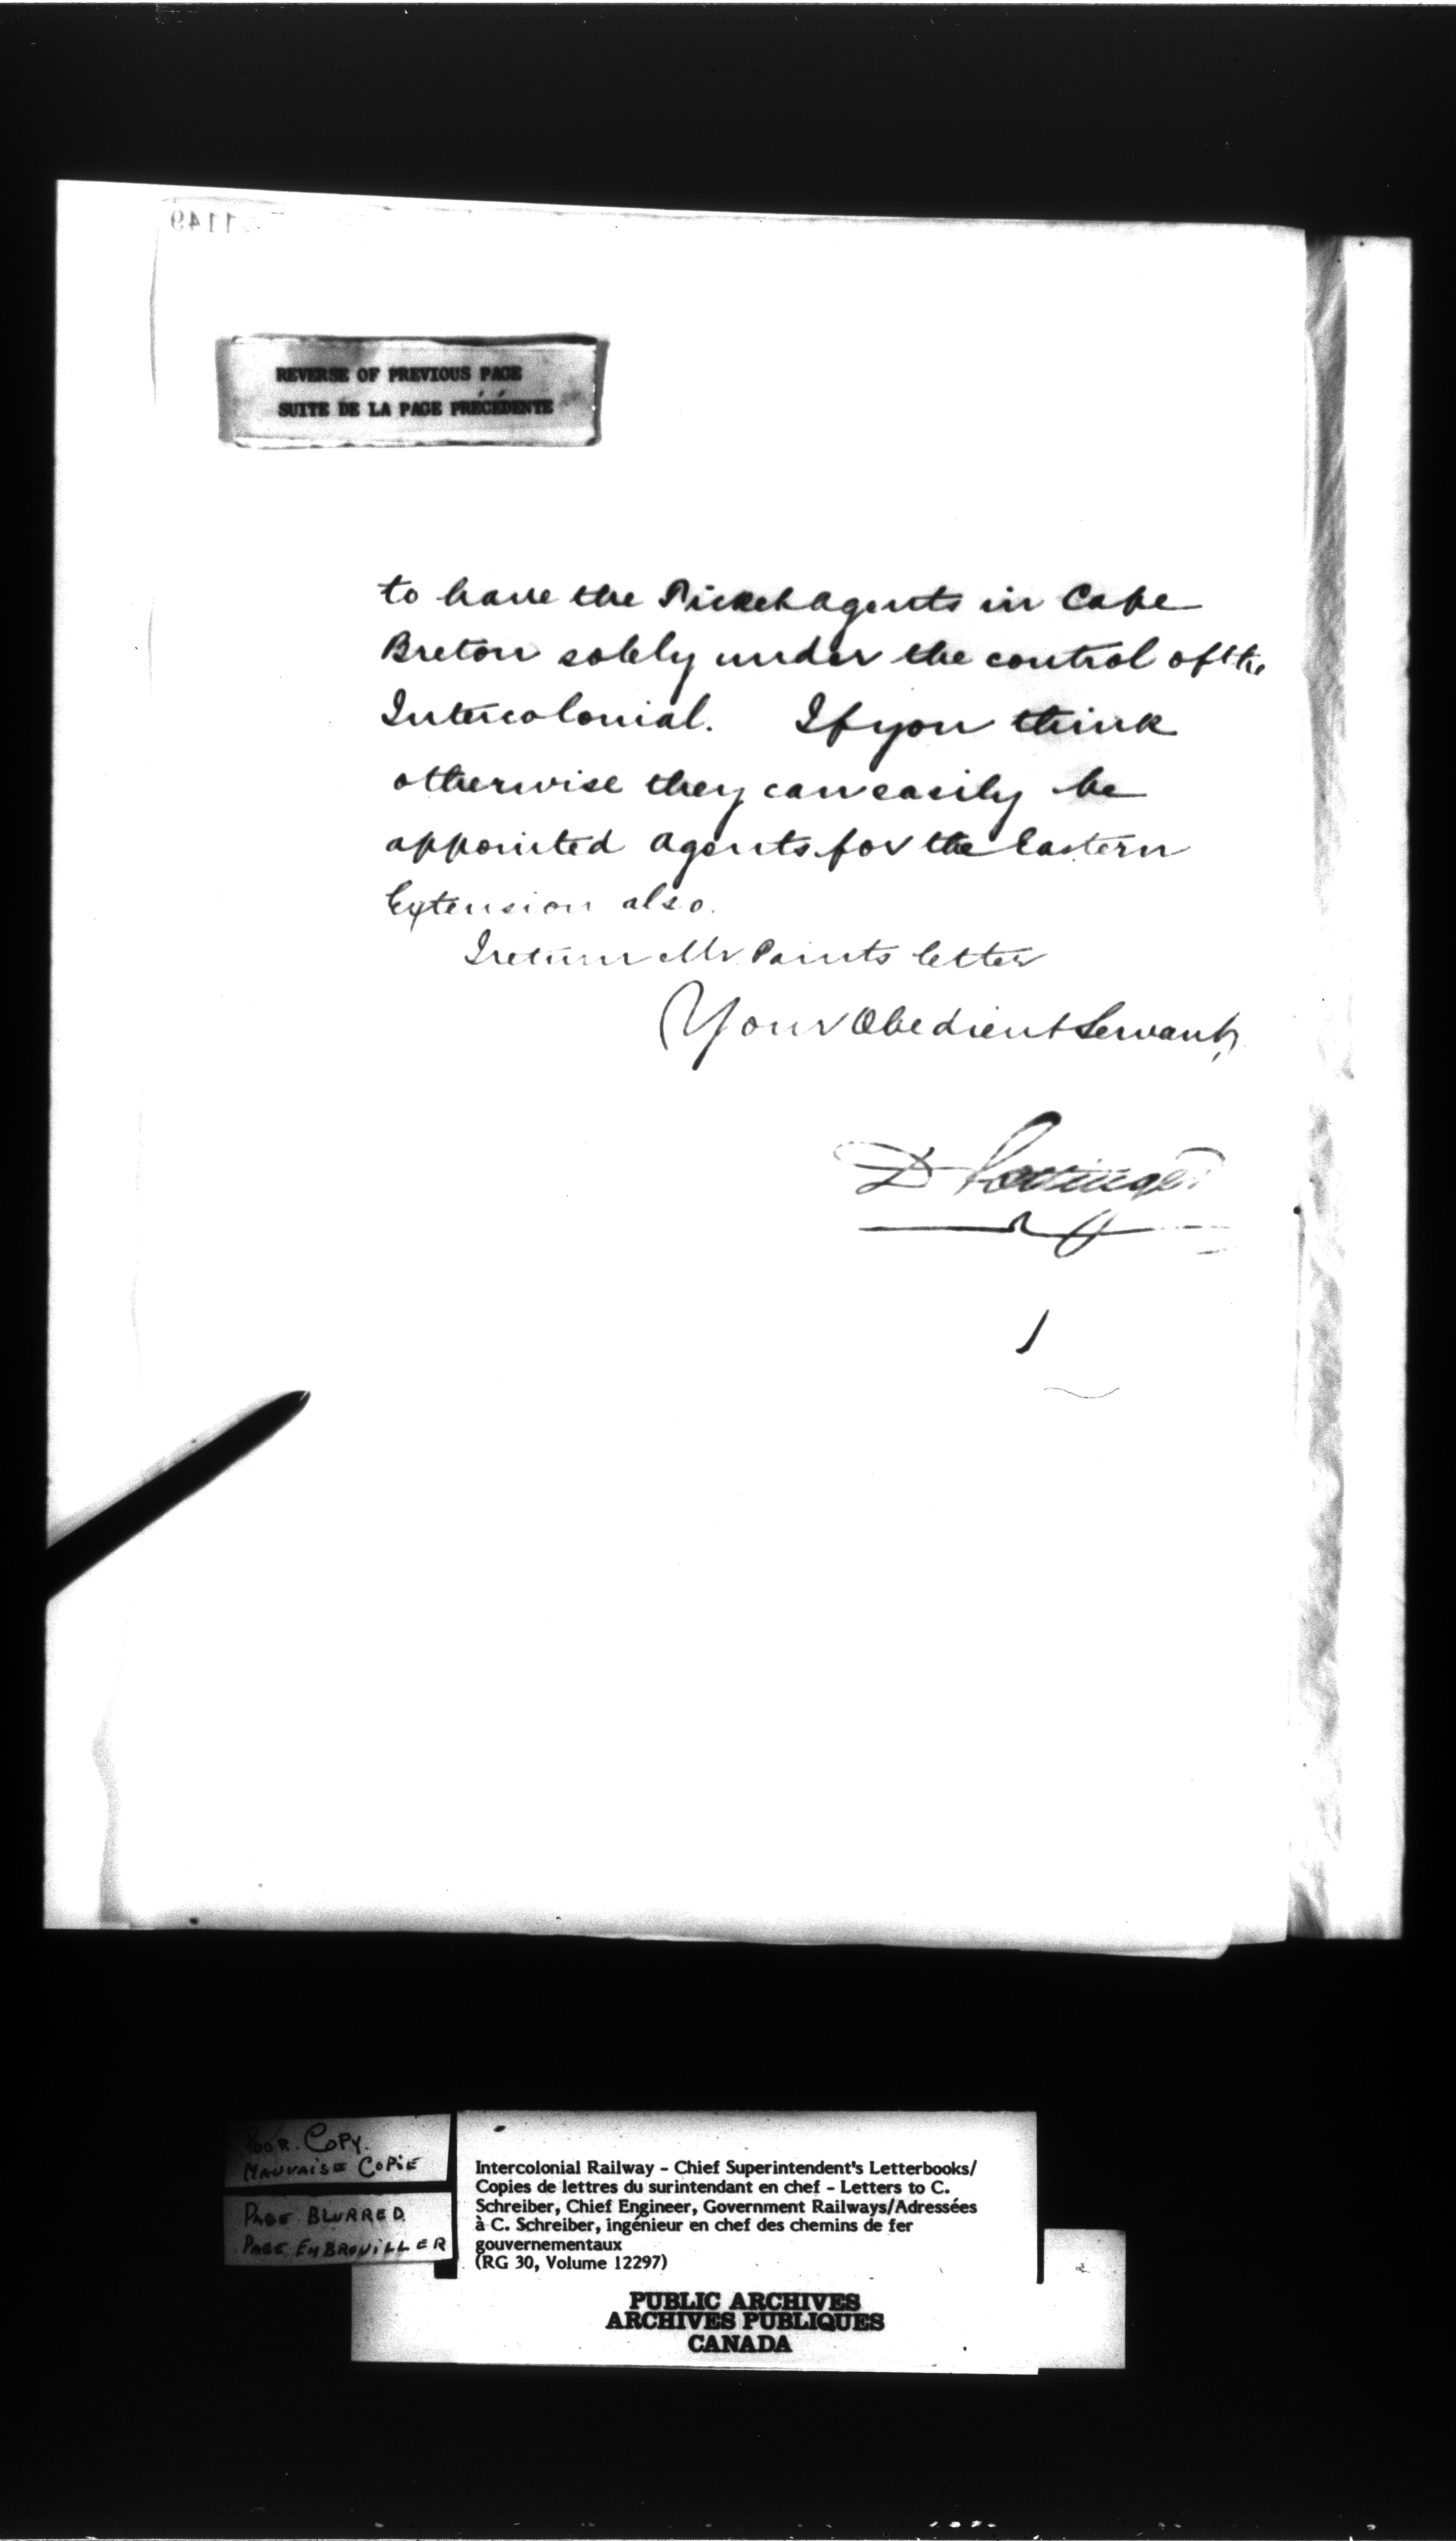 1149
REVERSE OF PREVIOUS PAGE
SUITE DE LA PAGE PRÉCÉDENTE
to have the Ticket agents in Cape
Breton solely under the control of the
Intercolonial. If you think
otherwise they can easily be
appointed agents for the Eastern
Extension also.
I return Mr. Paints letter
Your Obedient Servant,
D Pottinger
POOR. COPY.
MAUVAISE COPIE
PAGE BLURRED
PAGE EMBROUILLER
Intercolonial Railway - Chief Superintendent's Letterbooks/
Copies de lettres du surintendant en chef - Letters to C.
Schreiber, Chief Engineer, Government Railways/Adressées
à C. Schreiber, ingénieur en chef des chemins de fer
gouvernementaux
(RG 30, Volume 12297)
PUBLIC ARCHIVES
ARCHIVES PUBLIQUES
CANADA